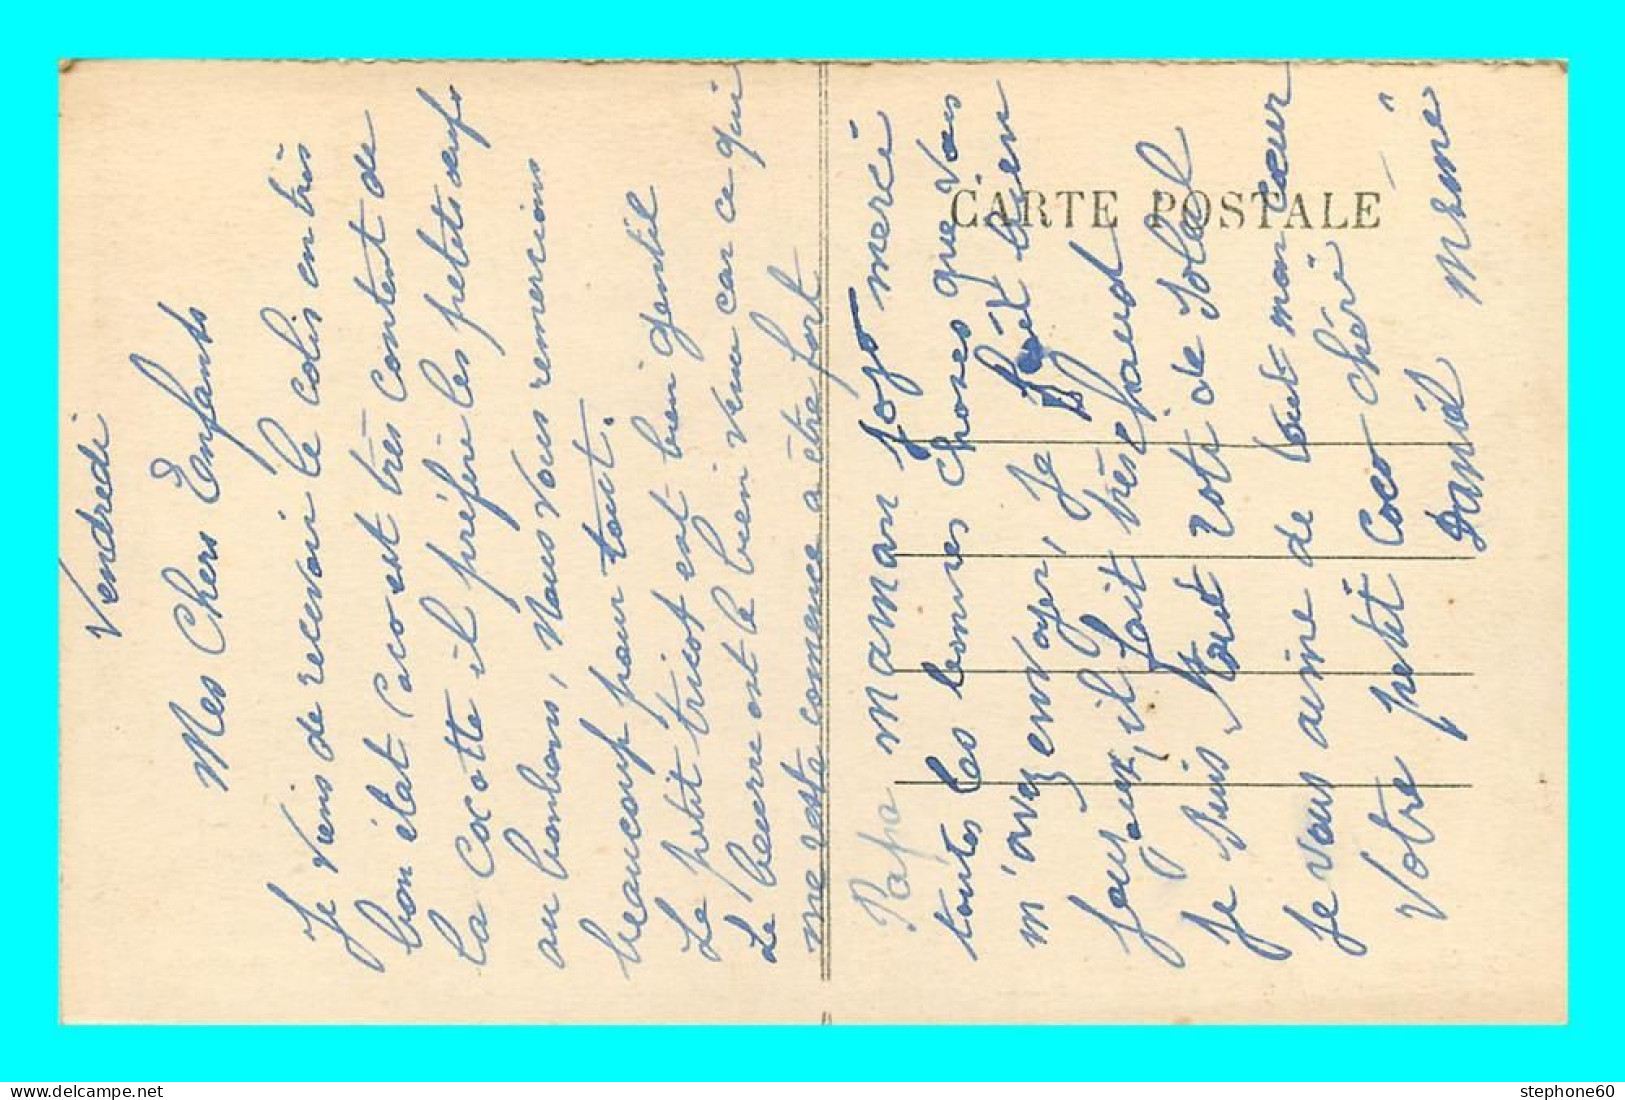 Vendredi
Mes Chers Enfants
Je viens de recevoir le colis en très
bon état Coco est très content de
la Cocotte il préfére les petits œufs
au bonbons, Nous vous remercions
beaucoup pour tout.
Le petit tricot est bien gentil
Le beurre est le bien venu car ce qui
me reste comence a être fort
CARTE POSTALE
Papa maman Jojo merci
toutes les bonnes choses que vous
m'avez envoyer, Je fait bien
joujour, il fait très chaud
Je suis tout roti de soleil
Je vous aime de tout mon cœur
Votre petit Coco chéri
Daniel Mémé
stephone60